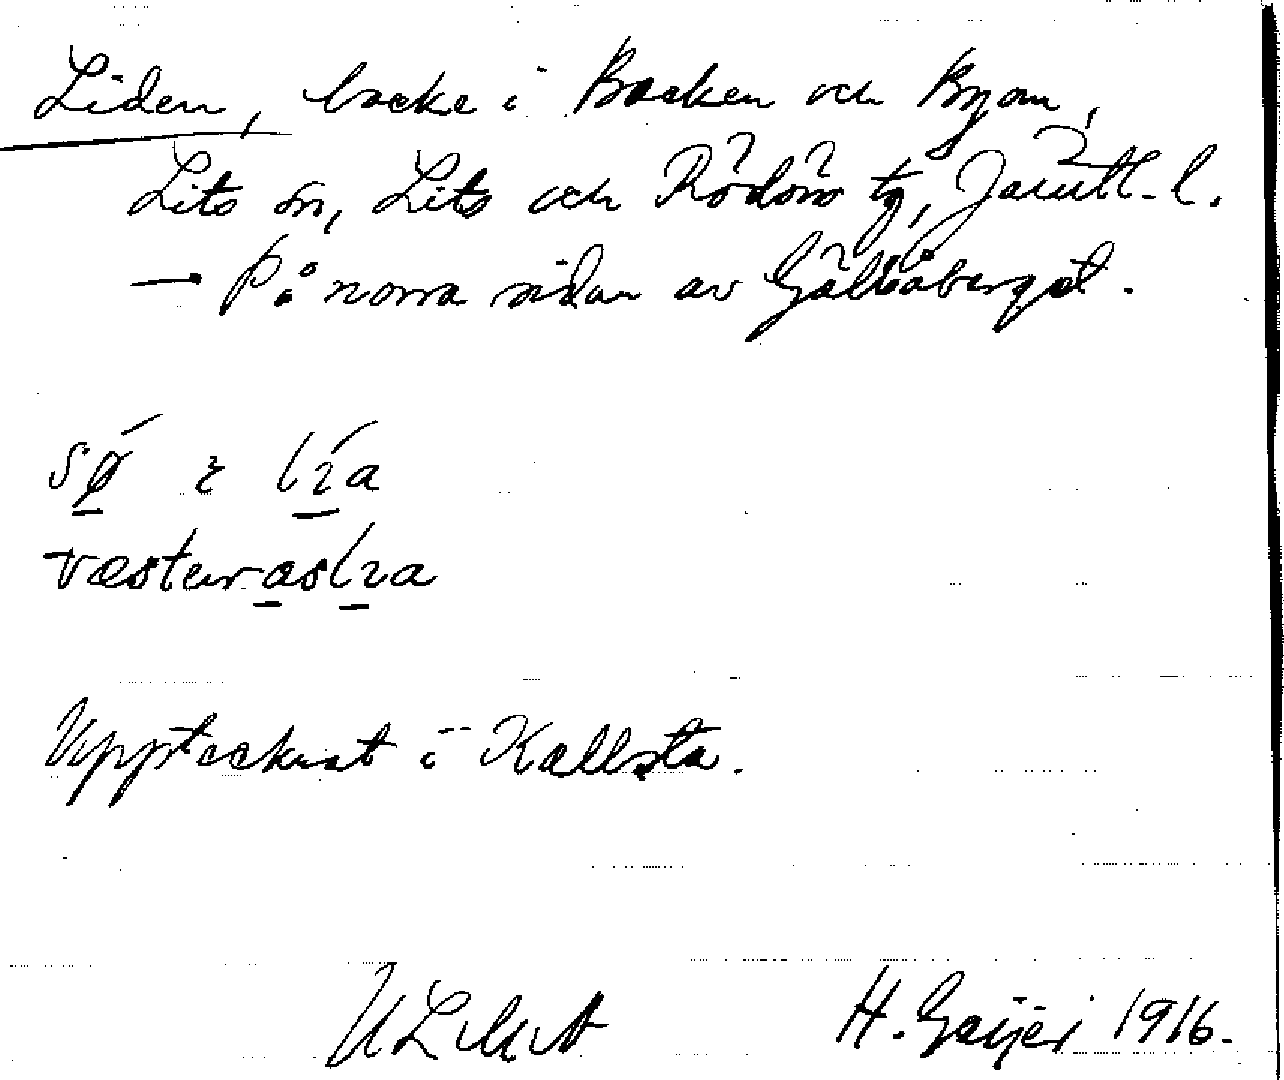 Liden, backe i Backen och Byom,
Lits sn, Lits och Rödöns tg, Jämtl. l.
— På norra sidan av Gåltåberget.
sǿ̱ ɪ lɪ̱́a
væsteras̱lɪ̱a
Upptecknat i Kallsta.
ULMA H. Geijer 1916.